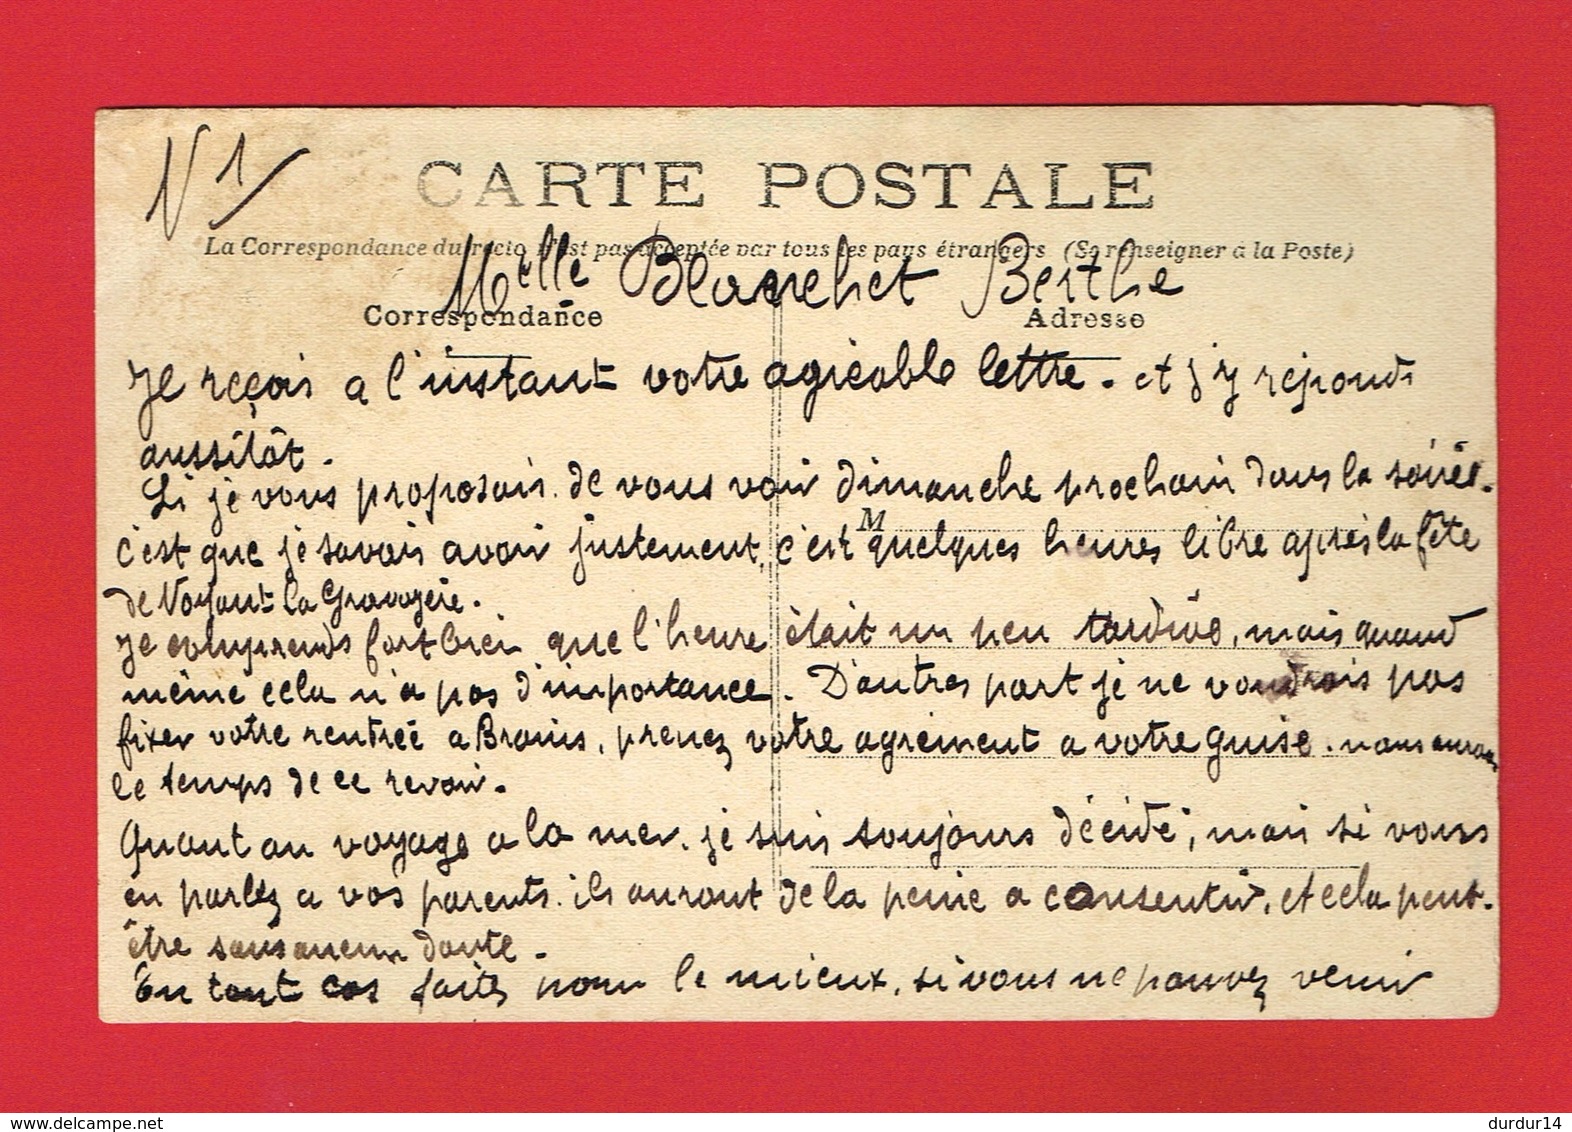 N 1
CARTE POSTALE
La Correspondance du recto n'est pas acceptée par tous les pays étrangers (Se renseigner à la Poste)
Melle Blanchet Berthe
Correspondance Adresse
Je reçois a l'instant votre agréable lettre. et j'y reponds
aussitôt.
Si je vous proposais de vous voir dimanche prochain dans la soirée.
M
c'est que je savais avoir justement, c'est quelques heures libre après la fête
de Noyant la Gravoyère.
Je comprends fort bien que l'heure était un peu tardive, mais quand
même cela n'a pas d'importance. D'autres part je ne voudrais pas
fixer votre rentrée a Brains, prenez votre agrement a votre guise. nous aurons
le temps de ce revoir.
Quant au voyage a la mer. je suis toujours décidé, mais si vous
en parlez a vos parents. ils auront de la peine a consentir, et cela peut-
être sans aucun doute.
En tout cas faites pour le mieux, si vous ne pouvez venir
www.delcampe.net
durdur14